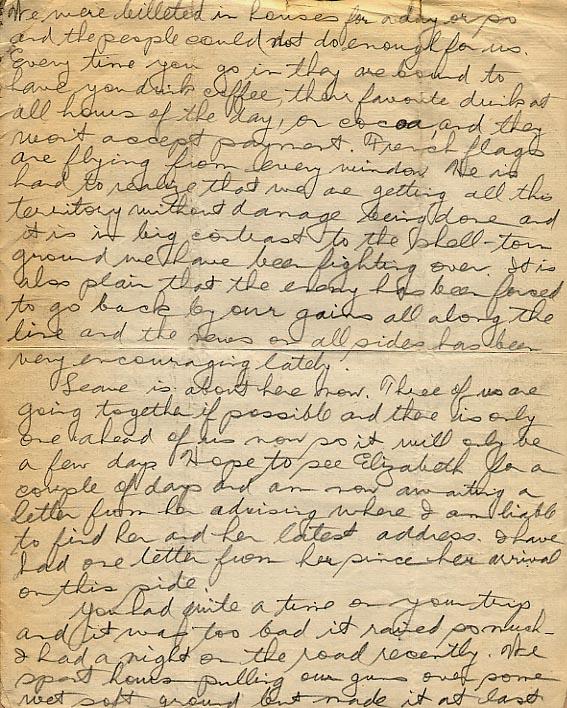 We were billeted in houses for a day or so
and the people could not do enough for us.
Every time you go in they are bound to
have you drink coffee, their favorite drink at
all hours of the day, or cocoa, and they
won't accept payment. French flags
are flying from every window. It is
hard to realize that we are getting all this
territory without damage being done and
it is in big contrast to the shell-torn
ground we have been fighting over. It is
also plain that the enemy has been forced
to go back by our gains all along the
line and the news on all sides has been
very encouraging lately.
Leave is about here now. Three of us are
going together if possible and there is only
one ahead of us now so it will only be
a few days. Hope to see Elizabeth for a
couple of days and am now awaiting a
letter from her advising where I am liable
to find her and her latest address. I have
had one letter from her since her arrival
on this side
You had quite a time on your trip
and it was too bad it rained so much-
I had a night on the road recently. We
spent hours pulling our guns over some
wet soft ground but made it at last